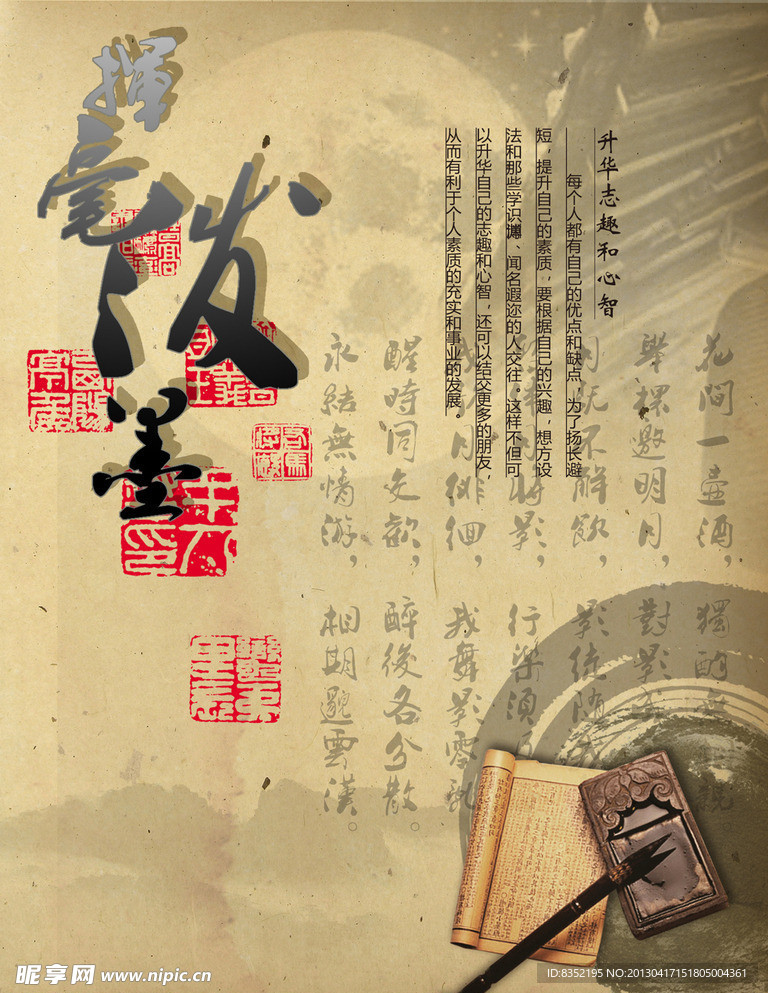 揮毫泼墨
升华志趣和心智
每个人都有自己的优点和缺点，为了扬长避
短，提升自己的素质，要根据自己的兴趣，想方设
法和那些学识、闻名遐迩的人交往。这样不但可
以升华自己的志趣和心智，还可以结交更多的朋友，
从而有利于个人素质的充实和事业的发展。
花間一壺酒，獨酌無親
舉杯邀明月，對影
月既不解飲，影徒随我
月將影，行樂須及
我歌月徘徊，我舞影零亂
醒時同交歡，醉後各分散。
永結無情游，相期邈雲漢。
昵享网 www.nipic.cn
ID:8352195 NO:20130417151805004361